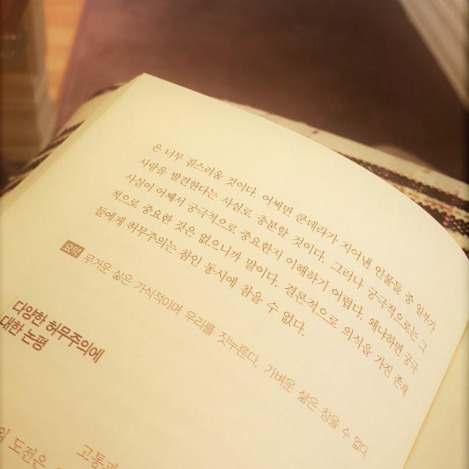 은 너무 짐스러울 것이다. 어쩌면 쿤데라가 지어낸 인물들 중 일부가
사랑을 발견한다는 사실로 충분할 것이다. 그러나 궁극적으로는 그
사실이 어째서 궁극적으로 중요한지 이해하기 어렵다. 왜냐하면 궁극
적으로 중요한 것은 없으니까 말이다. 결론적으로 의식을 가진 존재
들에게 허무주의는 참인 동시에 참을 수 없다.
요약 무거운 삶은 가식적이며 우리를 짓누른다. 가벼운 삶은 참을 수 없다.
다양한 허무주의에
대한 논평
고통과
도전은